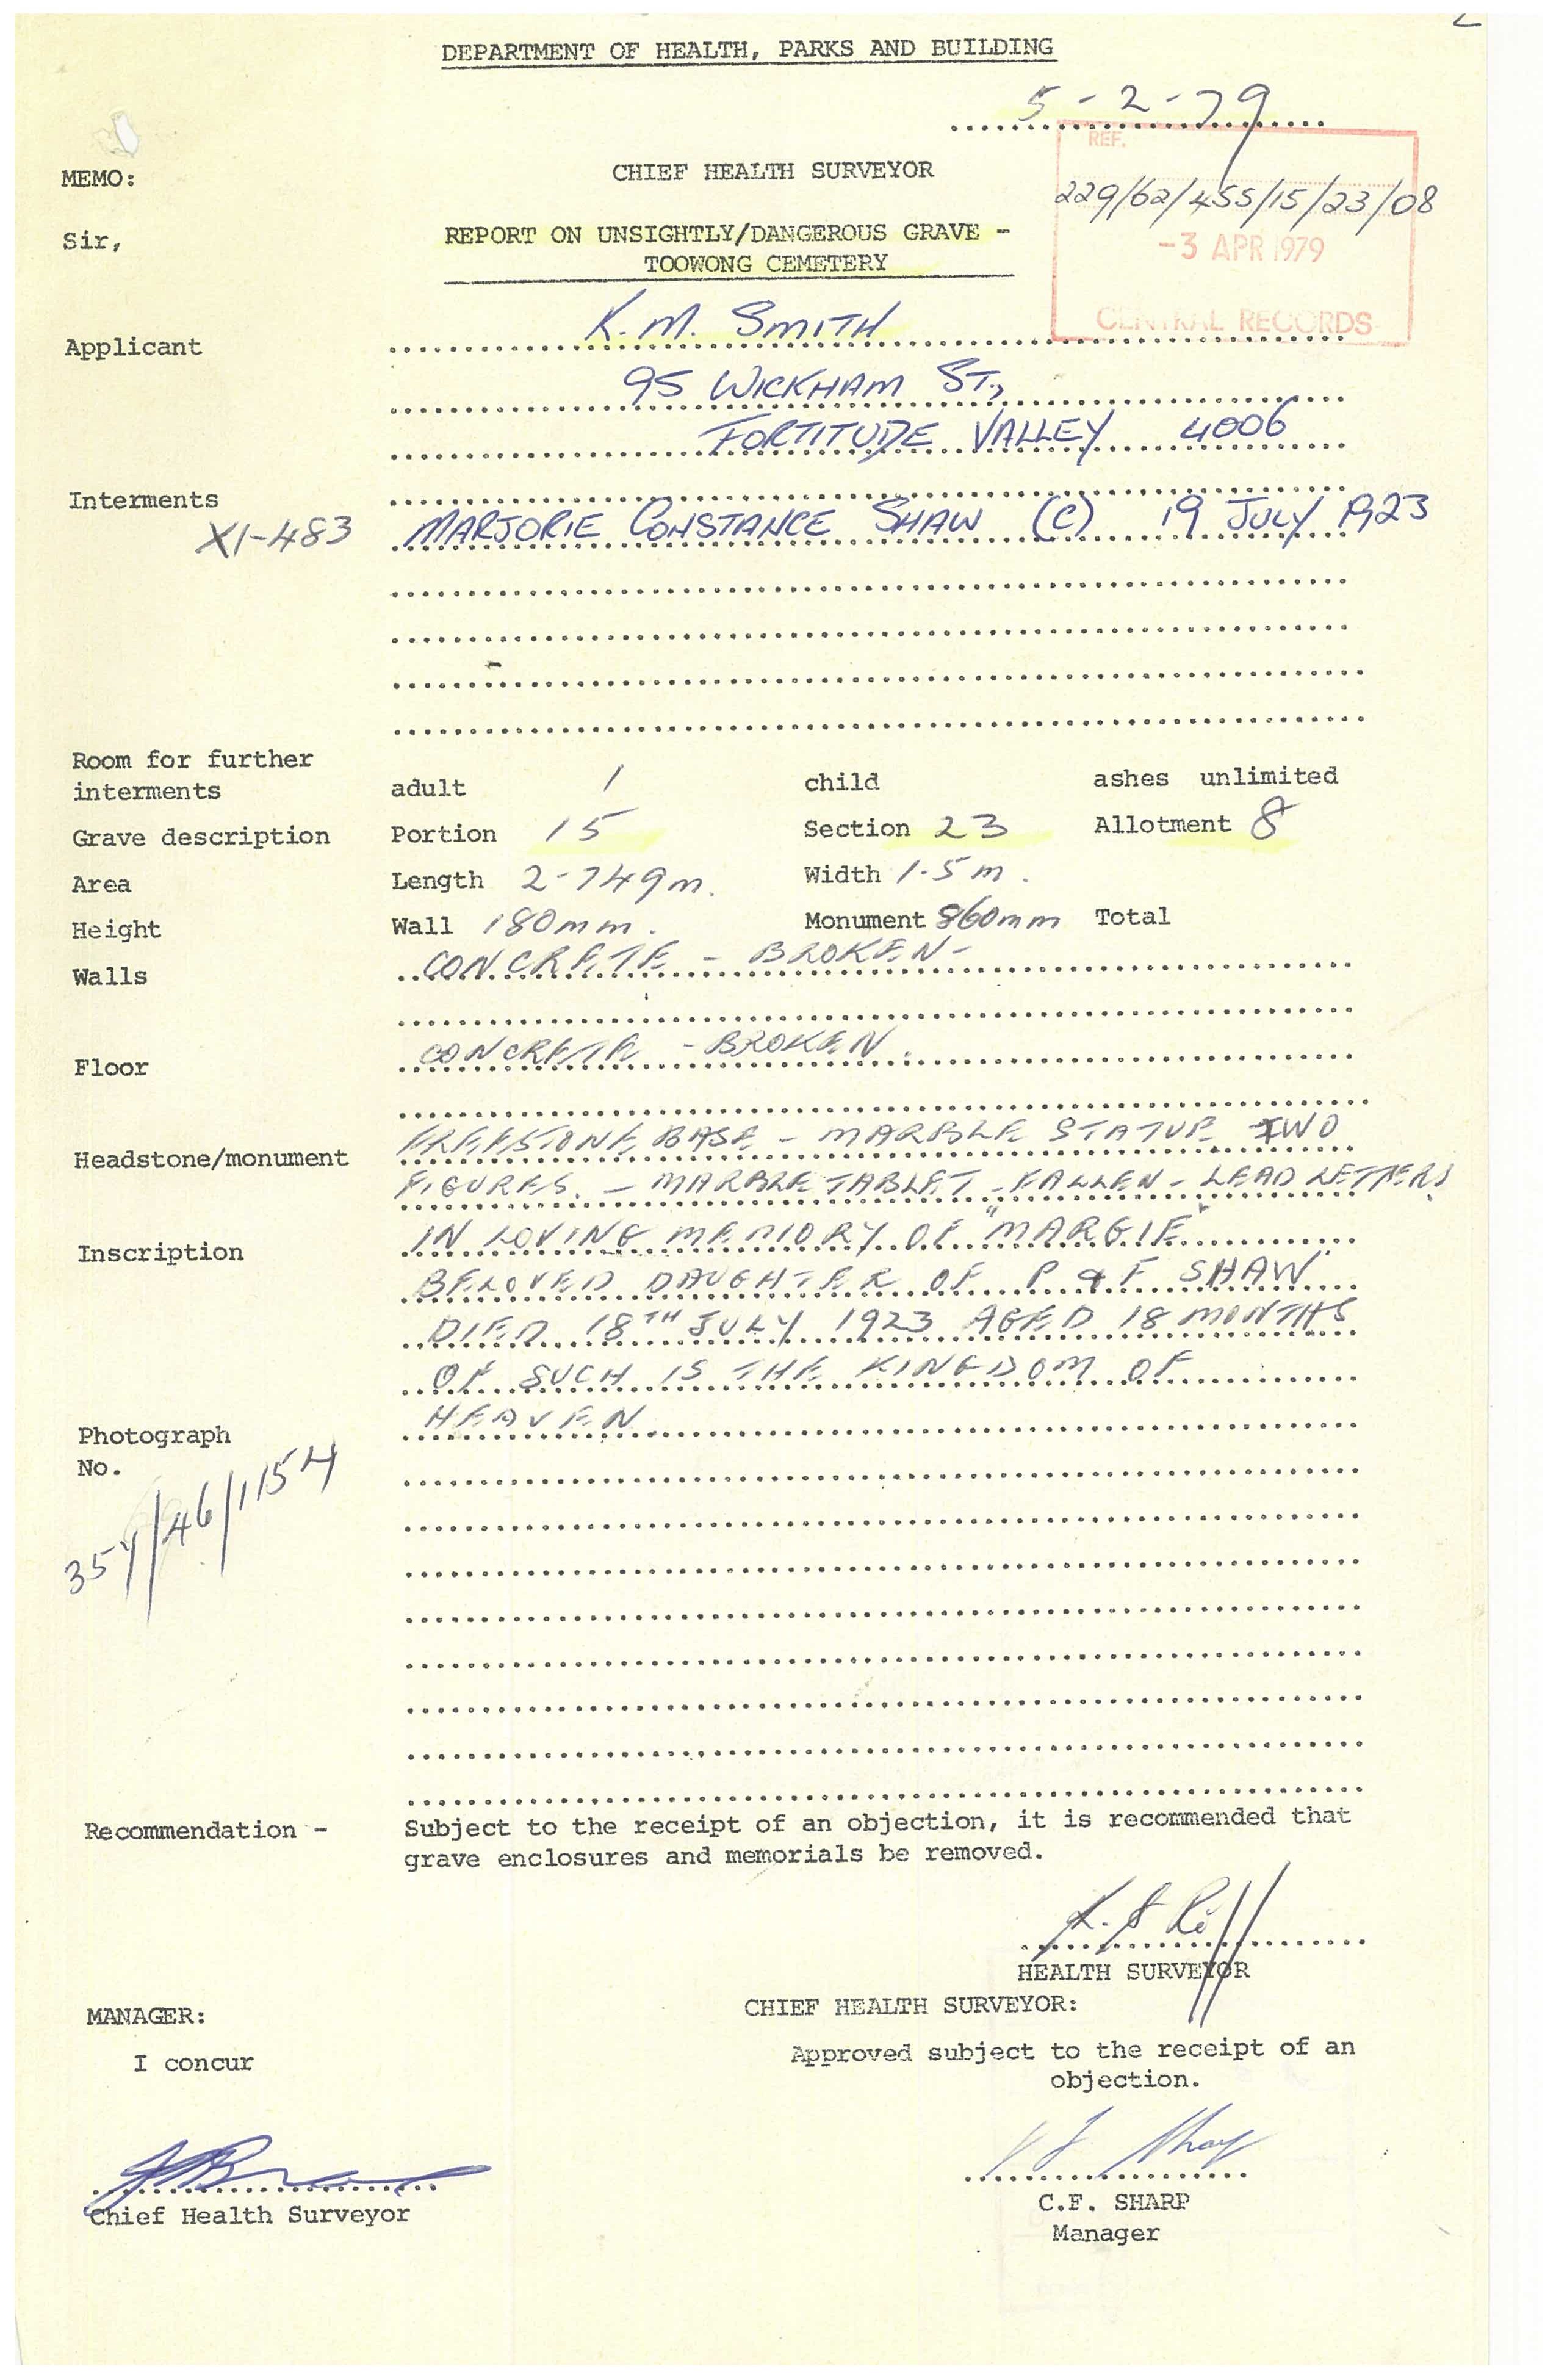 DEPARTMENT OF HEALTH, PARKS AND BUILDING
5-2-79
REF.
MEMO:
CHIEF HEALTH SURVEYOR
229/62/455/15/23/08
Sir,
REPORT ON UNSIGHTLY/DANGEROUS GRAVE -
TOOWONG CEMETERY
-3 APR 1979
CENTRAL RECORDS
Applicant K.M. SMITH
95 WICKHAM ST.,
FORTITUDE VALLEY 4006
Interments
XI-483 MARJORIE CONSTANCE SHAW (C) 19 JULY 1923
Room for further
interments adult 1 child ashes unlimited
Grave description Portion 15 Section 23 Allotment 8
Area Length 2-749m. Width 1.5m.
Height Wall 180mm. Monument 860mm Total
Walls CONCRETE - BROKEN-
Floor CONCRETE - BROKEN.
Headstone/monument FREESTONE BASE - MARBLE STATUE TWO
FIGURES. - MARBLE TABLET - FALLEN - LEAD LETTERS
Inscription IN LOVING MEMORY OF "MARGIE"
BELOVED DAUGHTER OF P & F SHAW
DIED 18TH JULY 1923 AGED 18 MONTHS
OF SUCH IS THE KINGDOM OF
HEAVEN
Photograph
No.
Recommendation - Subject to the receipt of an objection, it is recommended that
grave enclosures and memorials be removed.
HEALTH SURVEYOR
CHIEF HEALTH SURVEYOR:
MANAGER:
I concur
Approved subject to the receipt of an
objection.
Chief Health Surveyor
C.F. SHARP
Manager